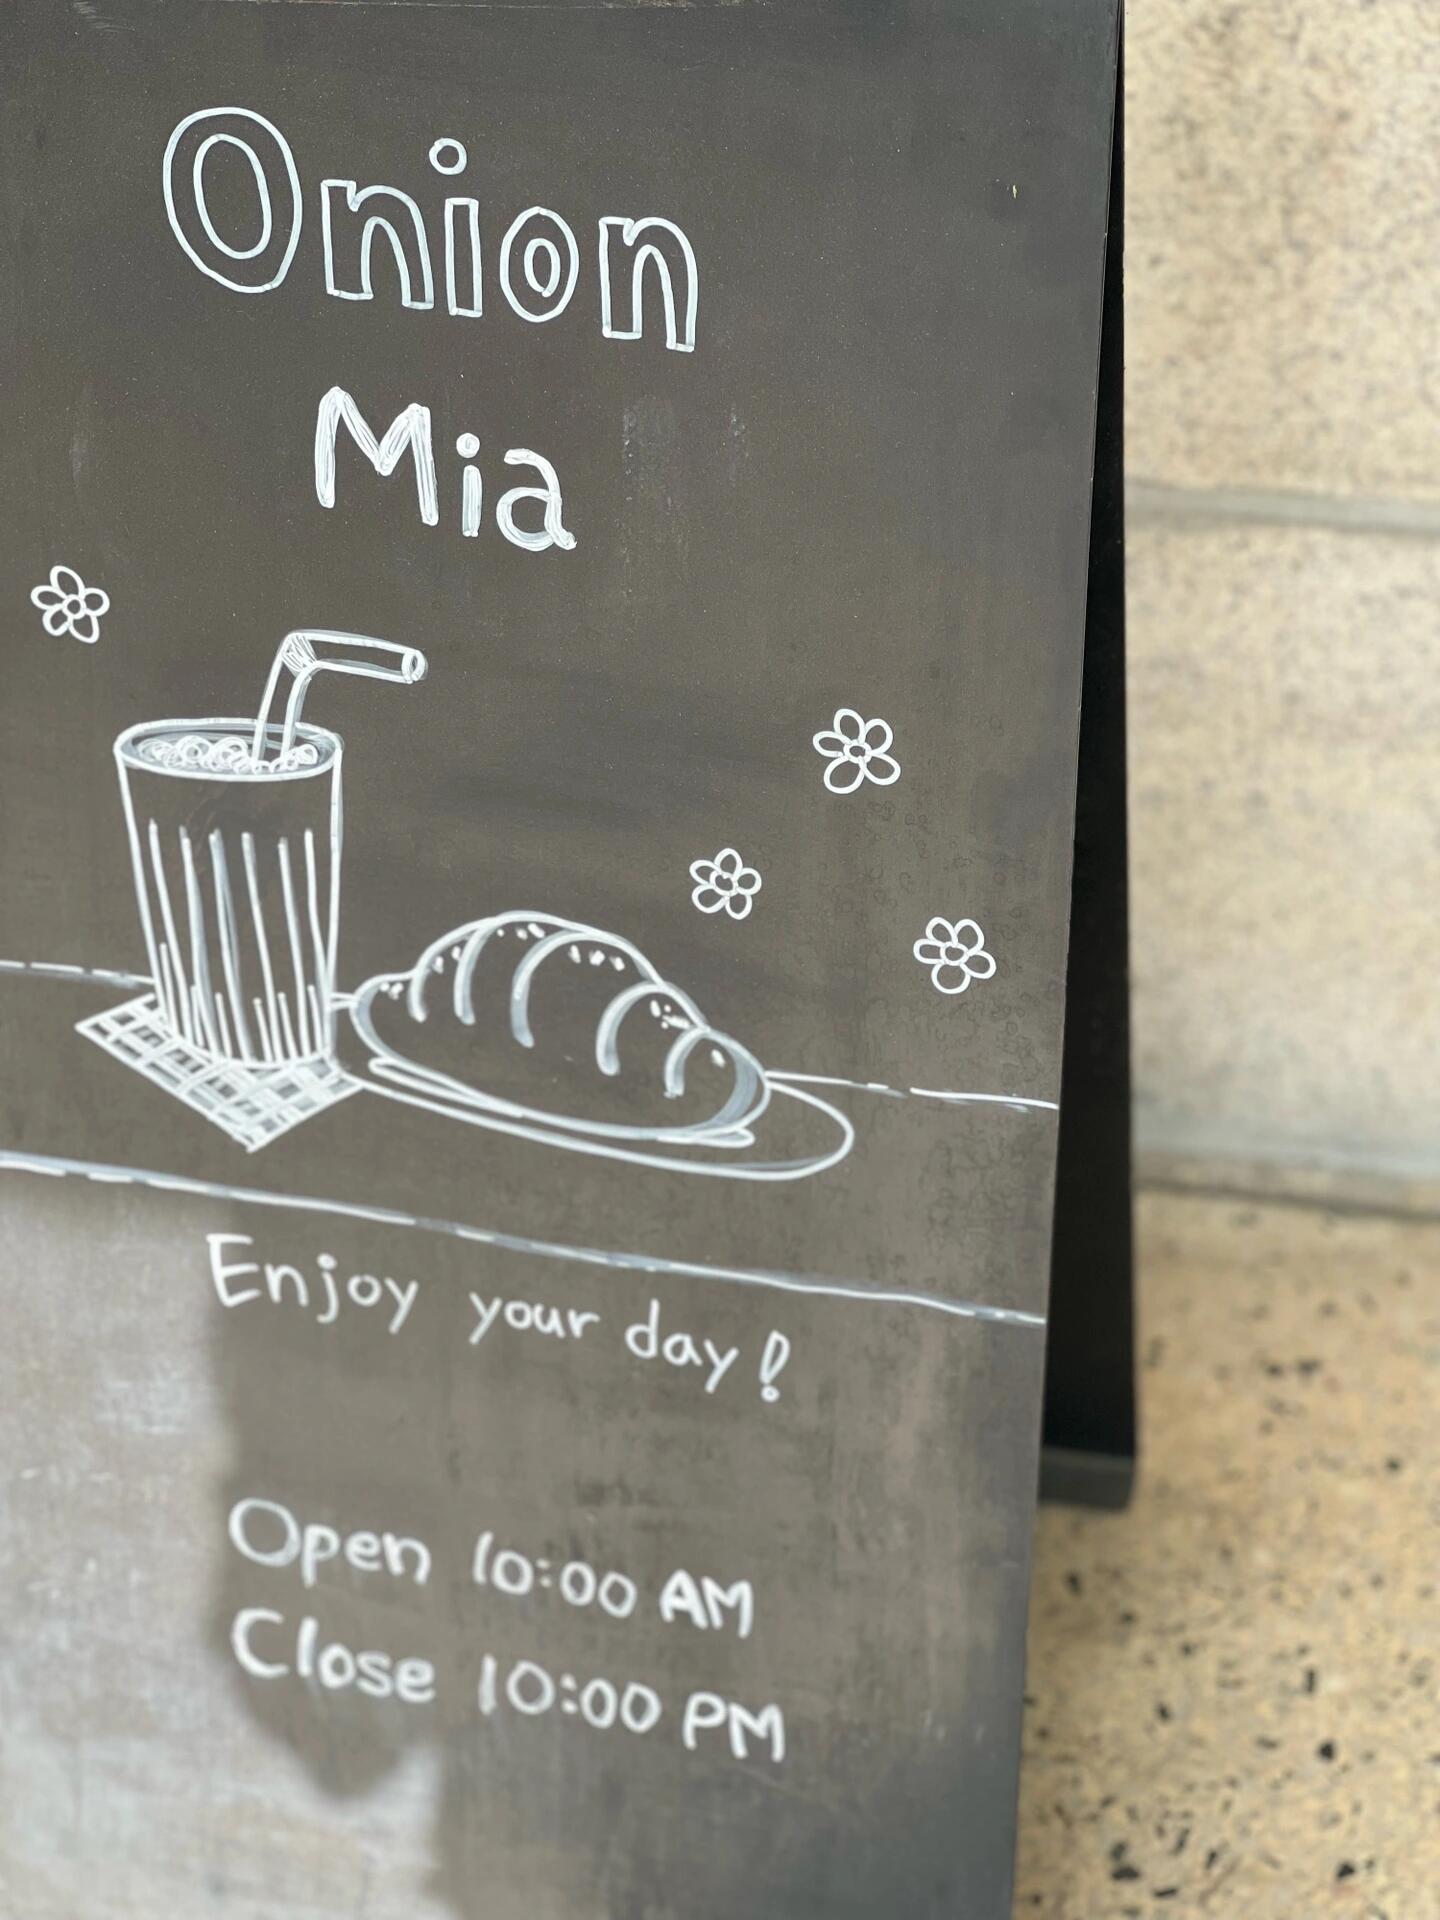 Onion
Mia
Enjoy your day!
Open 10:00 AM
Close 10:00 PM